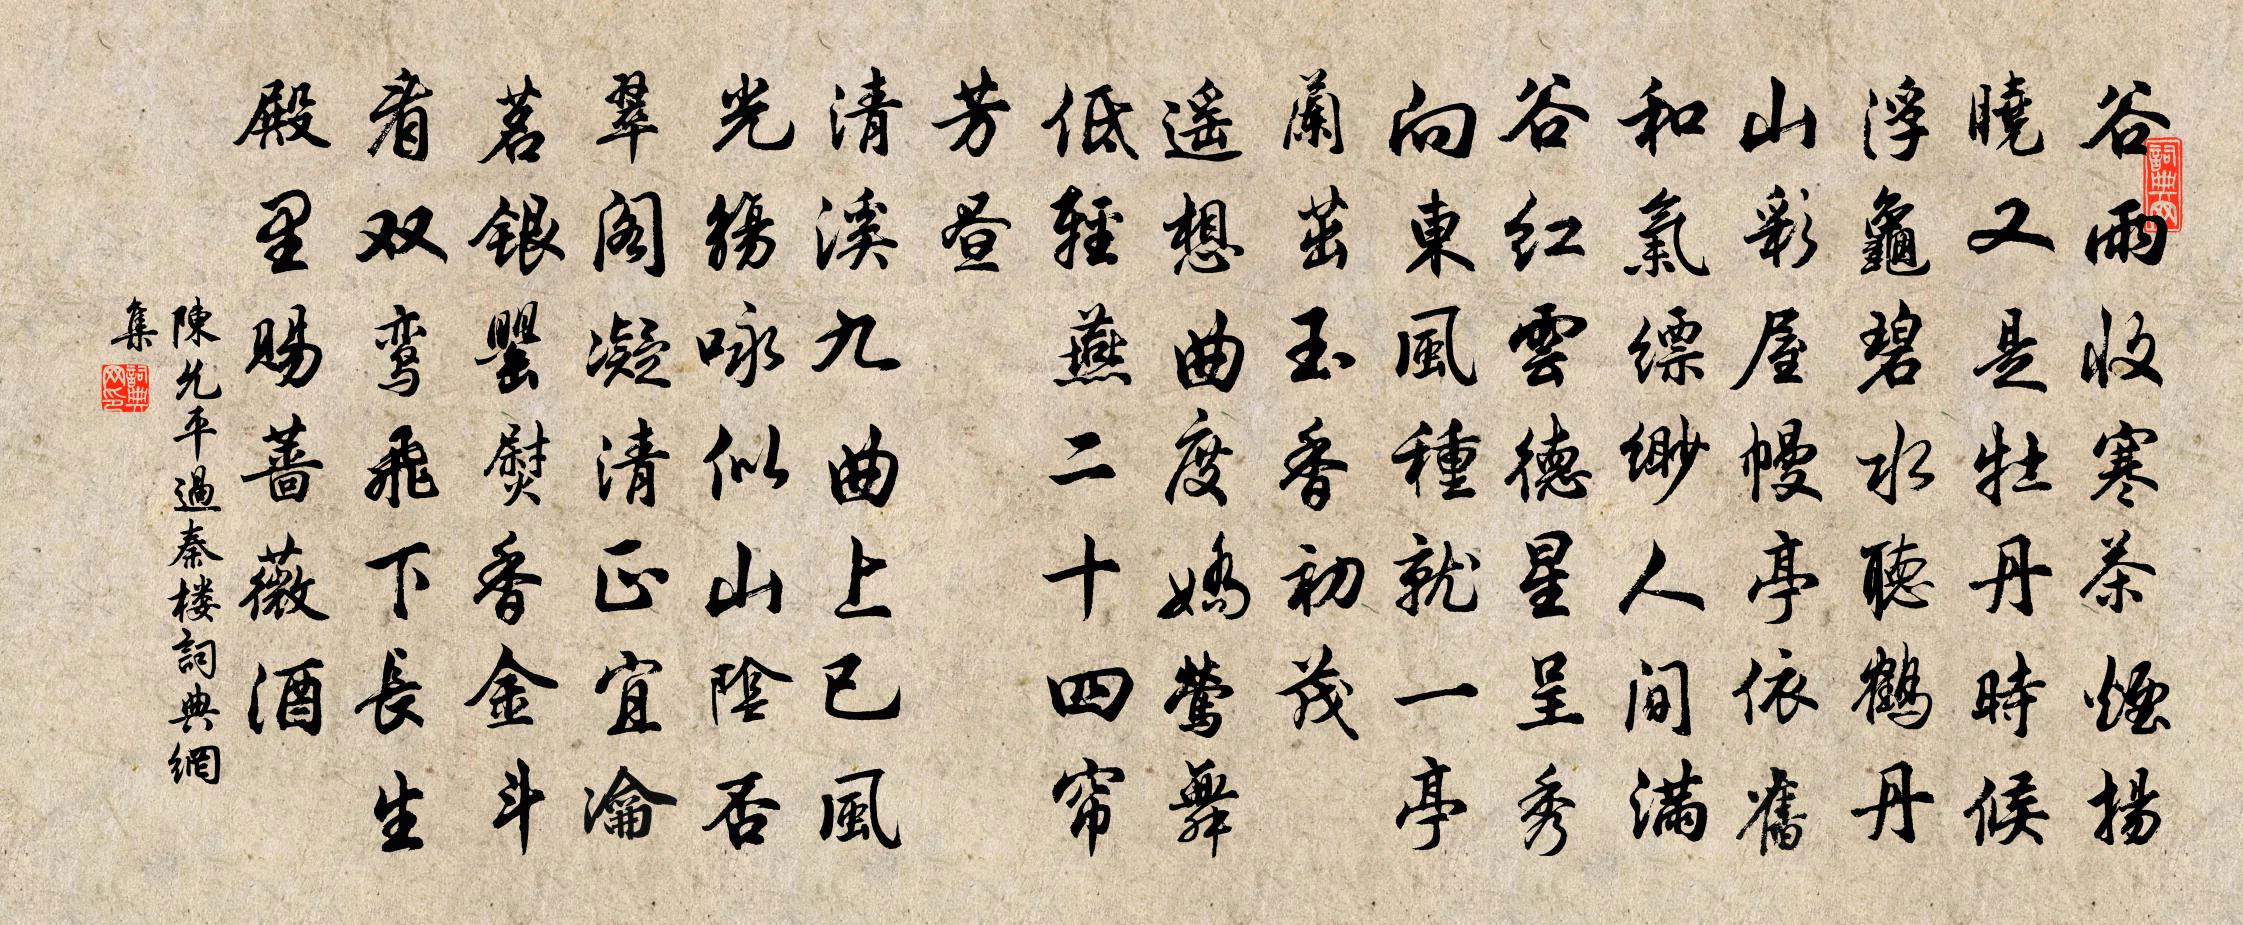 谷雨收寒茶煙揚
曉又是牡丹時候
浮龜碧水聽鶴丹
山彩屋幔亭依舊
和氣缥緲人间滿
谷红雲德星呈秀
向東風種就一亭
蘭茁玉香初茂
遥想曲度嬌鶯舞
低輕燕二十四帘
芳昼
清溪九曲上已風
光觞咏似山陰否
翠阁凝清正宜瀹
茗銀罂熨香金斗
看双鸾飛下長生
殿里赐蔷薇酒
陳允平過秦楼詞典網
集
詞典网
詞典网印